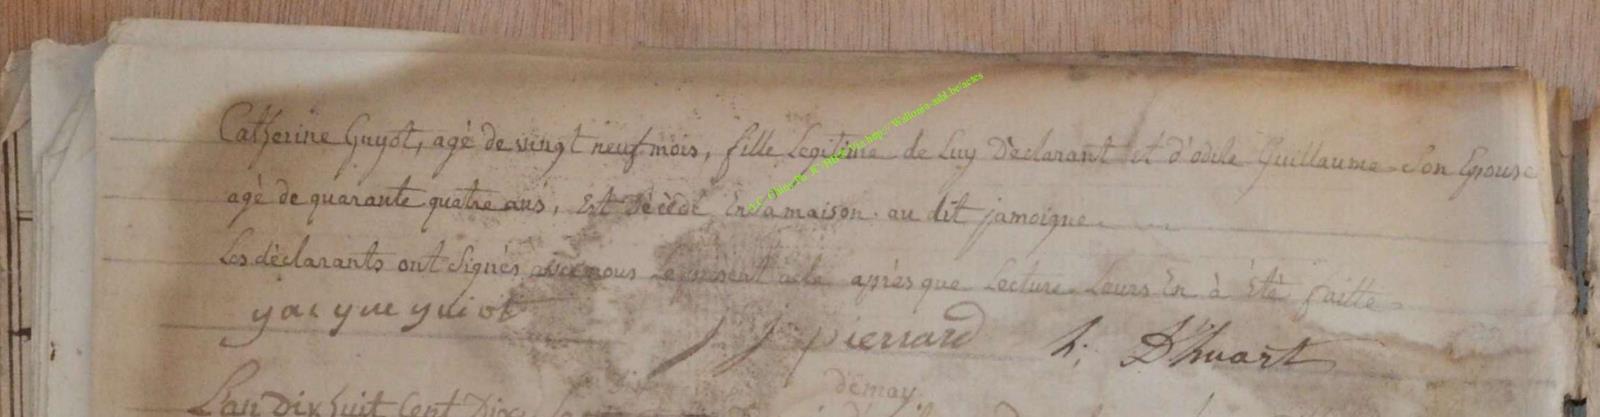 Catherine Guyot, agé de vingt neuf mois, fille Legitime de Luy Déclarant et d'odile Guillaume Son Epouse
agé de quarante quatre ans, Est décédé En sa maison au dit jamoigne
Les déclarants ont Signés avec nous Le present acte après que Lecture Leurs En à Eté faitte
yacque guiot J J pierrard h. D'huart
demay
L'an Dix huit Cent Dix